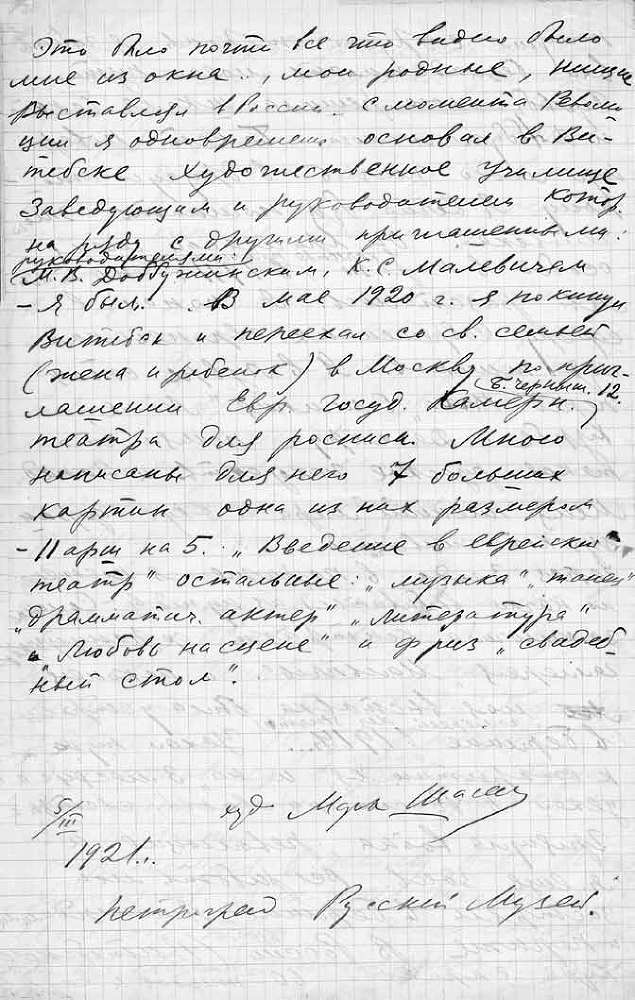 Это было почти все что видно было
мне из окна .., мои родные, нищие
Выставлял в России. с момента Револю
ции я одновременно основал в Ви-
тебске художественное училище
Заведующим и руководителем котор.
на ряду с другими приглашенными:
руководителями:
М. В. Добужинским, К. С. Малевичем
- я был. В мае 1920 г. я покинул
Витебск и переехал со св. семьей
(жена и ребенок) в Москву по приг-
Б. Черныш. 12.
лашении Евр. Госуд. Камерн.
театра для росписи. Много
написаны для него 7 больших
картин одна из них размером
- 11 арш на 5. „Введение в еврейский
театр" остальные: „музыка" „танец"
„драмматич. актер" „литература"
„Любовь на сцене" и фриз „свадеб-
ный стол".
5/III худ Марк Шагал
1921..
Петроград Русский Музей.